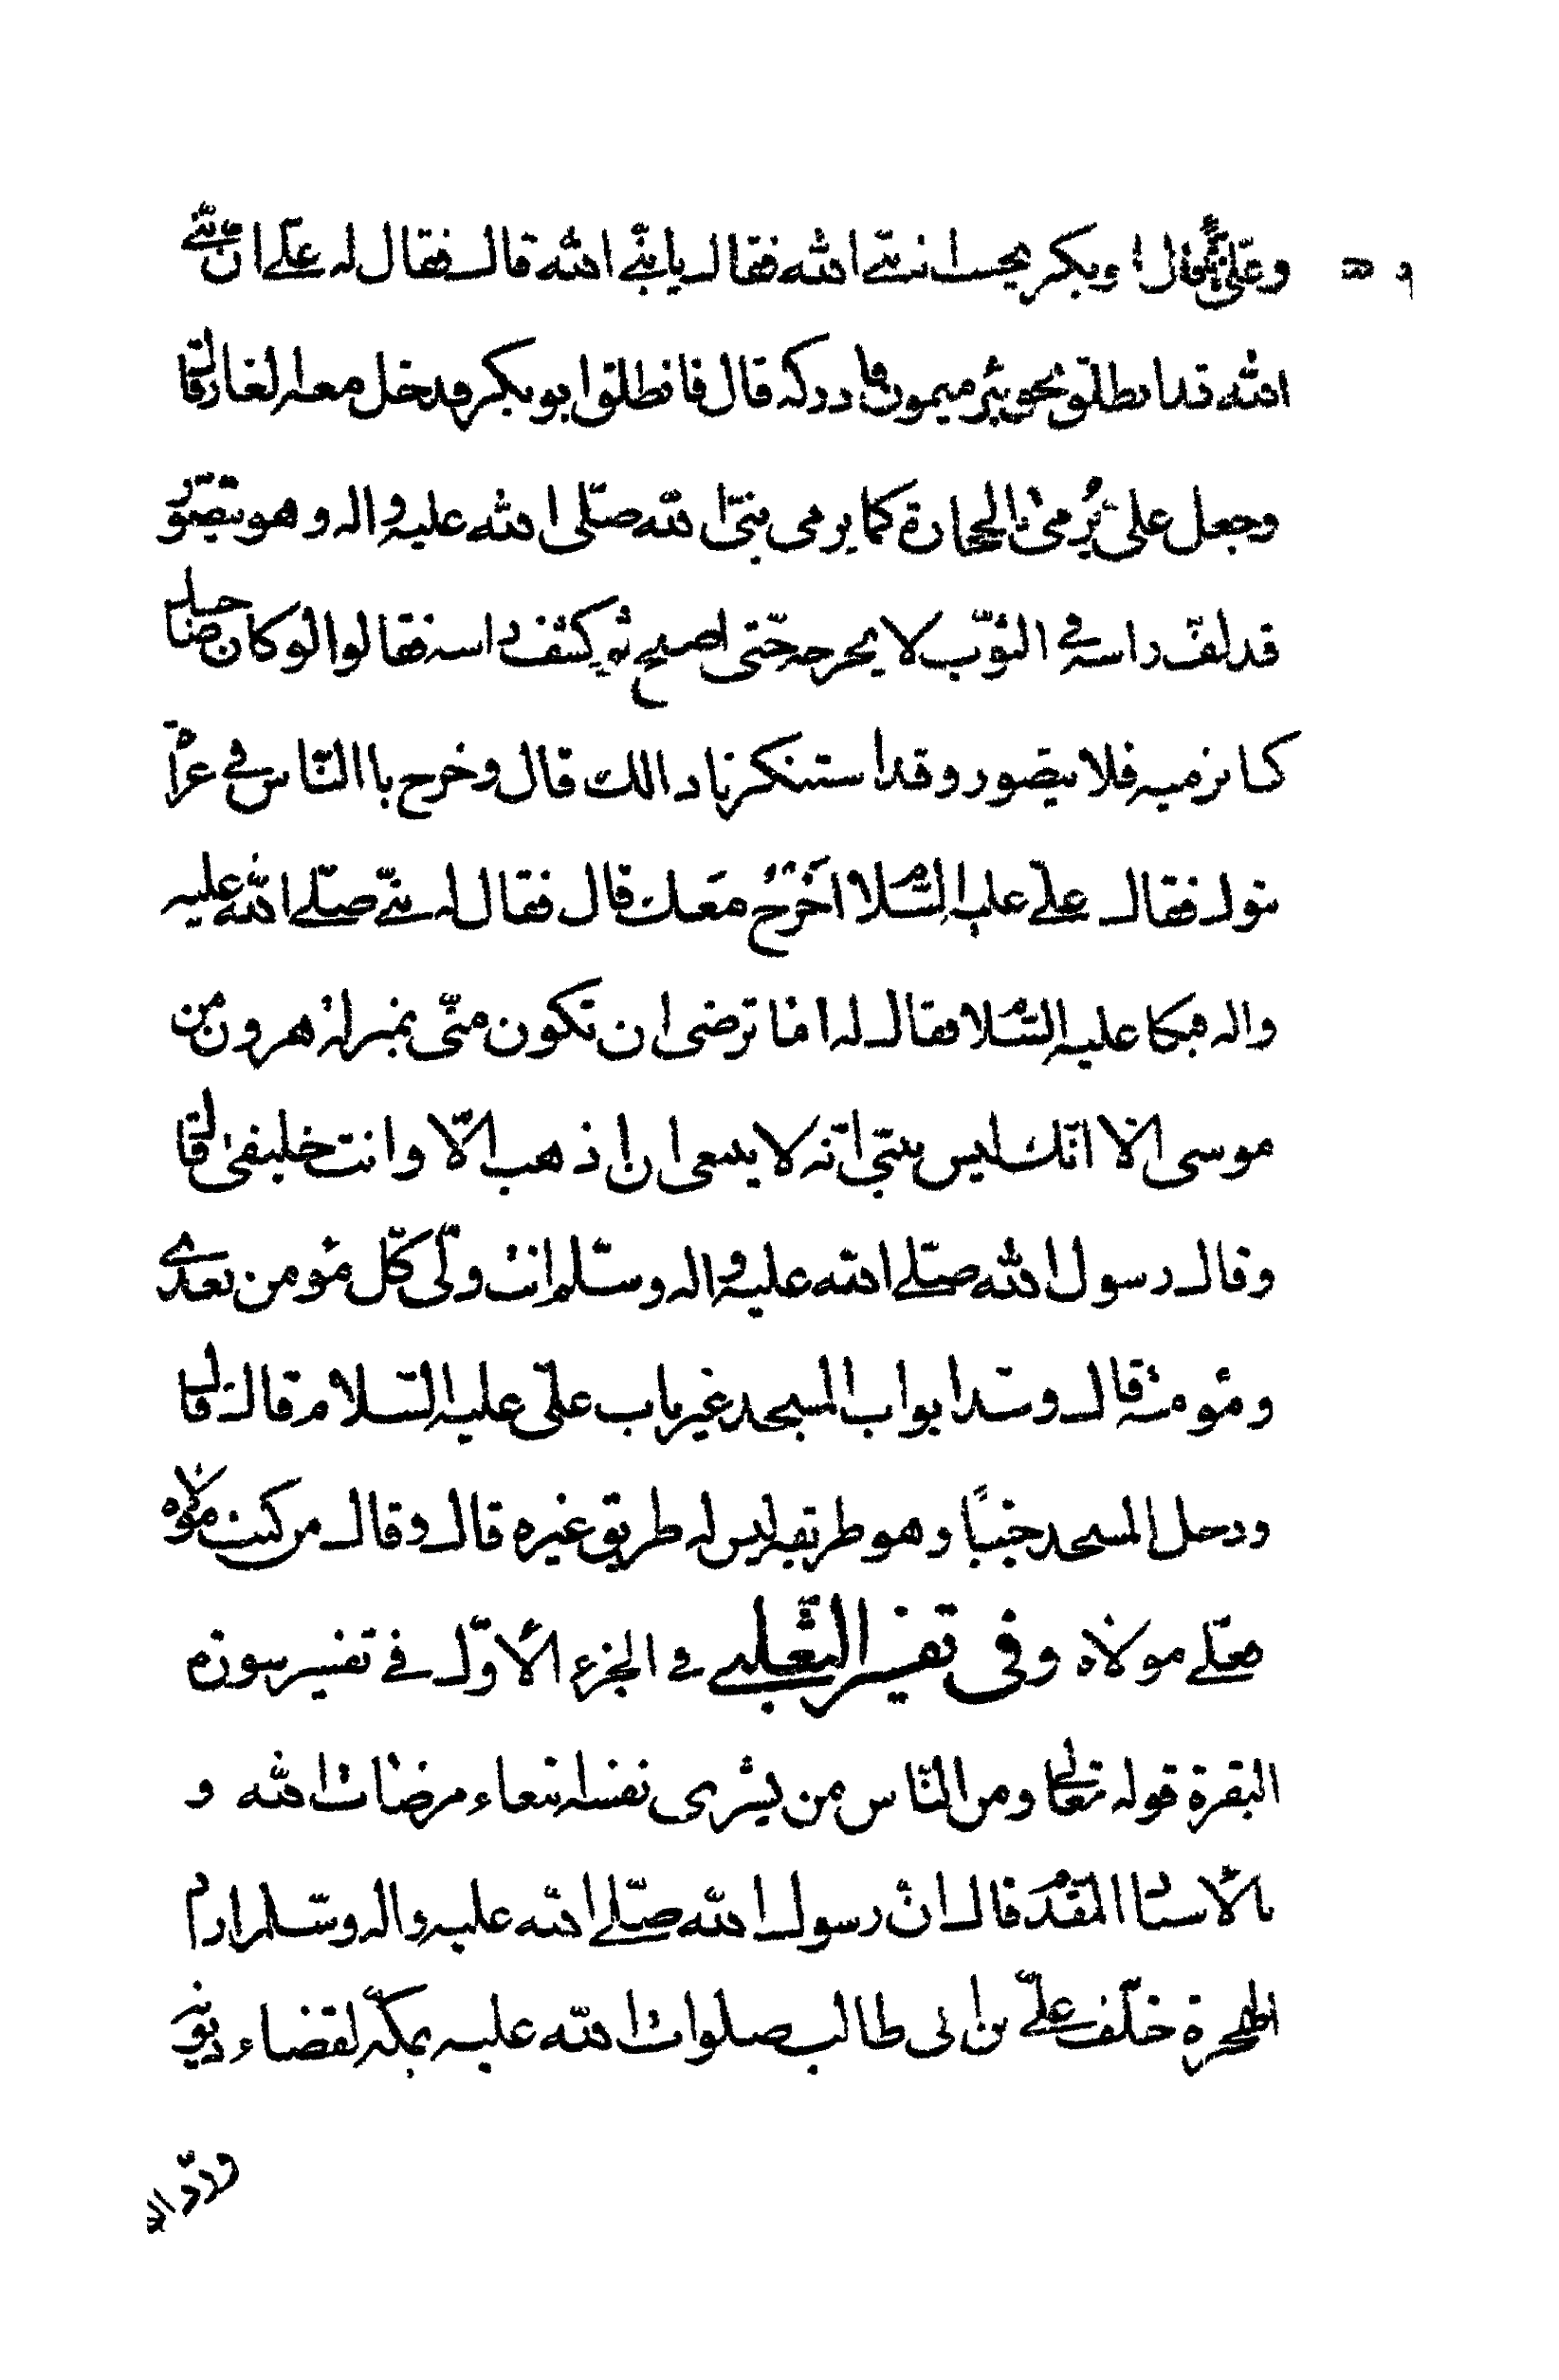 وعلى نائم قال وابوبكر يحسب انه نبى الله فقال يا نبى الله قال فقال له على ان نبى
الله قد انطلق نحو بئر ميمون فادركه قال فانطلق ابوبكر فدخل معه الغار قال
وجعل على يُرمى بالحجارة كما يرمى نبى الله صلّى الله عليه واله وهو يتضوّر
قد لفّ راسه فى الثوب لا يخرجه حتّى اصبح ثم كشف راسه فقالوا لو كان صاحبك
كنا نرميه فلا يتضور وقد استنكرنا دالك قال وخرج باالنّاس فى غزاة
تبوك فقال على عليه السّلام اَخرُج مَعك قال فقال له نبىّ صلّى الله عليه
واله فبكا عليه السّلام فقال له اما ترضى ان تكون منّى بمنزله هرون من
موسى الا انّك ليس بنبىّ انّه لا ينبعى ان اذهب الّا وانت خليفتى قال
وقال رسول الله صلّى الله عليه واله وسلّم انت ولّى كلّ مؤمن بعدى
ومؤمنه قال وسد ابواب المسجد غير باب علّى عليه السلام قال قال
ودخل المسجد جنبًا وهو طريقه ليس له طريق غيره قال وقال من كنت مولاه
فعلّى مولاه وفى تفسير الثّعلبى فى الجزء الاوّل فى تفسير سورة
البقرة قوله تعالى ومن النّاس من يشرى نفسه ابتغاء مرضات الله و
بالاسناد المقدّم قال ان رسول الله صلّى الله عليه واله وسلّم اراد
الهجرة خلّف علىّ بن ابى طالب صلوات الله عليه بمكّه لقضاء ديونه
وردّ الو